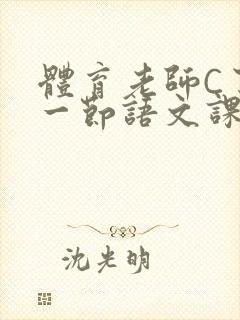 體育老師C
一節語文課
沈光明